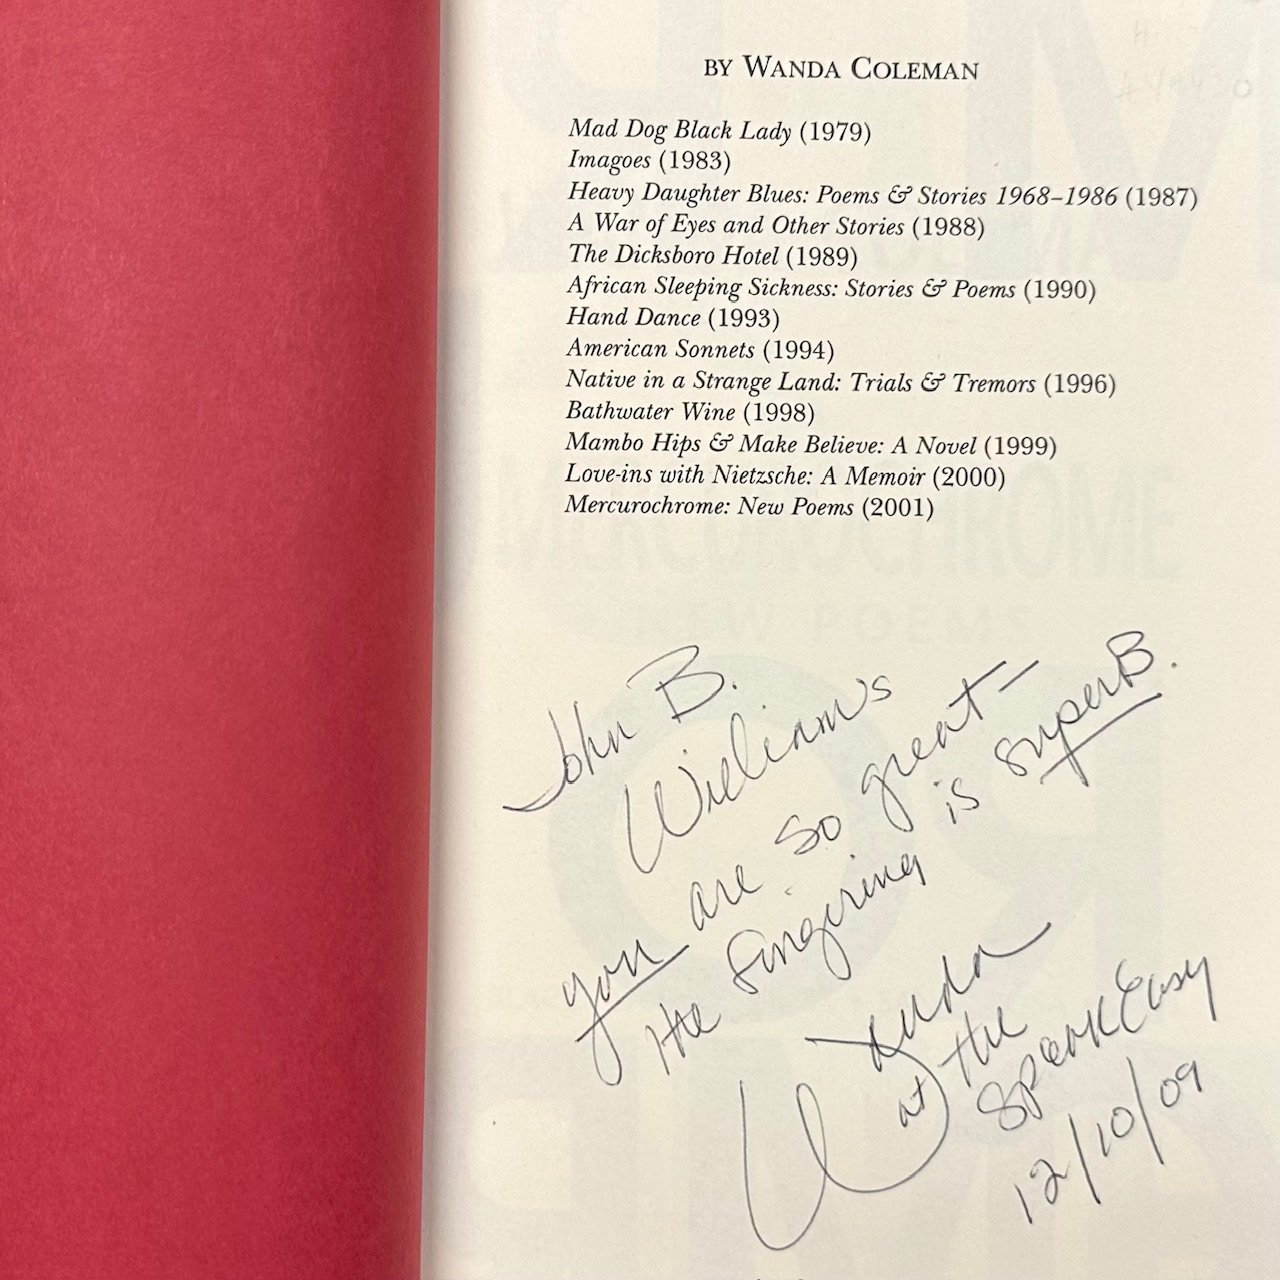 BY WANDA COLEMAN
Mad Dog Black Lady (1979)
Imagoes (1983)
Heavy Daughter Blues: Poems & Stories 1968–1986 (1987)
A War of Eyes and Other Stories (1988)
The Dicksboro Hotel (1989)
African Sleeping Sickness: Stories & Poems (1990)
Hand Dance (1993)
American Sonnets (1994)
Native in a Strange Land: Trials & Tremors (1996)
Bathwater Wine (1998)
Mambo Hips & Make Believe: A Novel (1999)
Love-ins with Nietzsche: A Memoir (2000)
Mercurochrome: New Poems (2001)
John B.
Williams
you are so great—
the fingering is superB.
Wanda
at the
SpeakEasy
12/10/09